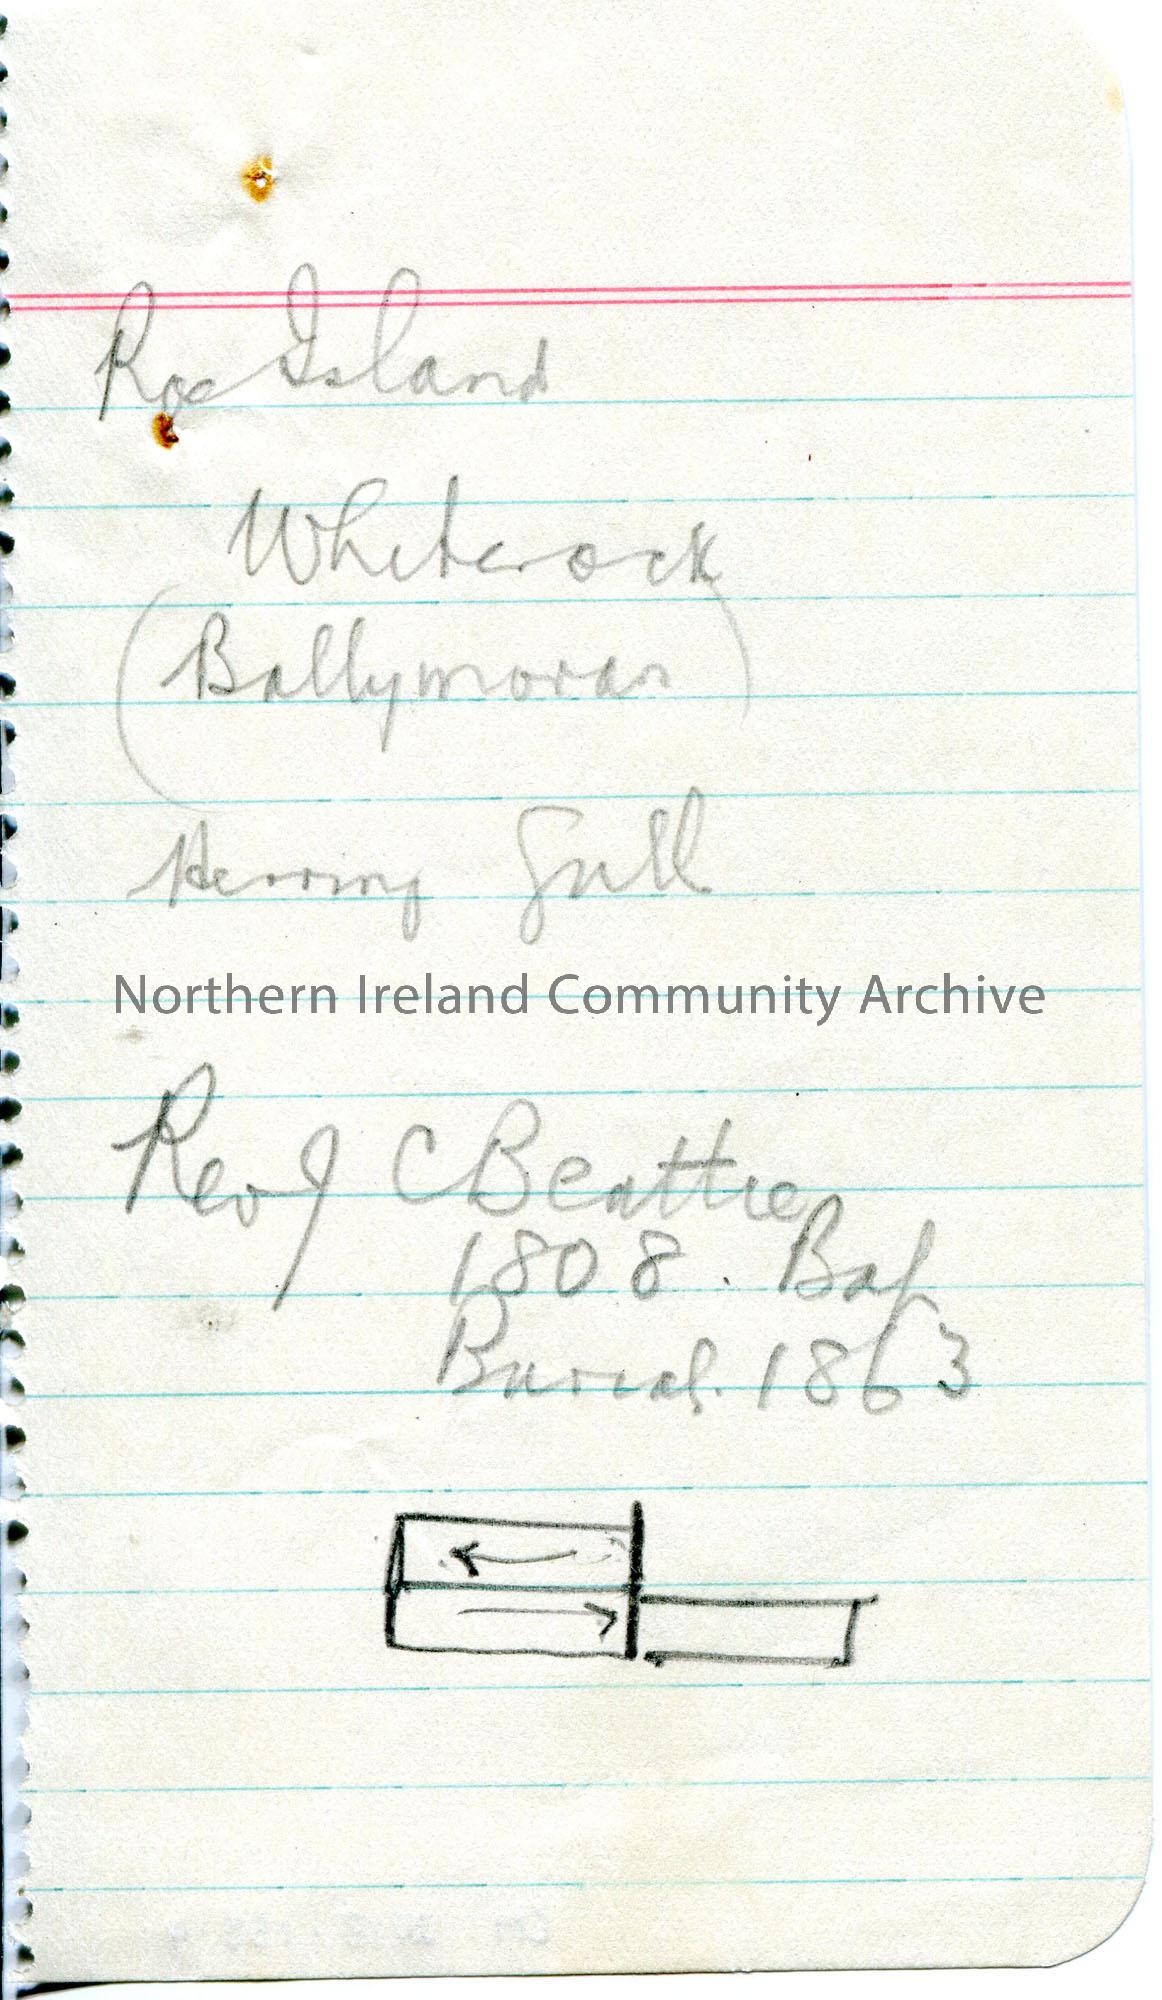 Roe Island
Whiterock
(Ballymoran)
Herring Gull
Northern Ireland Community Archive
Rev J C Beattie
1808. Bap
Burial. 1863